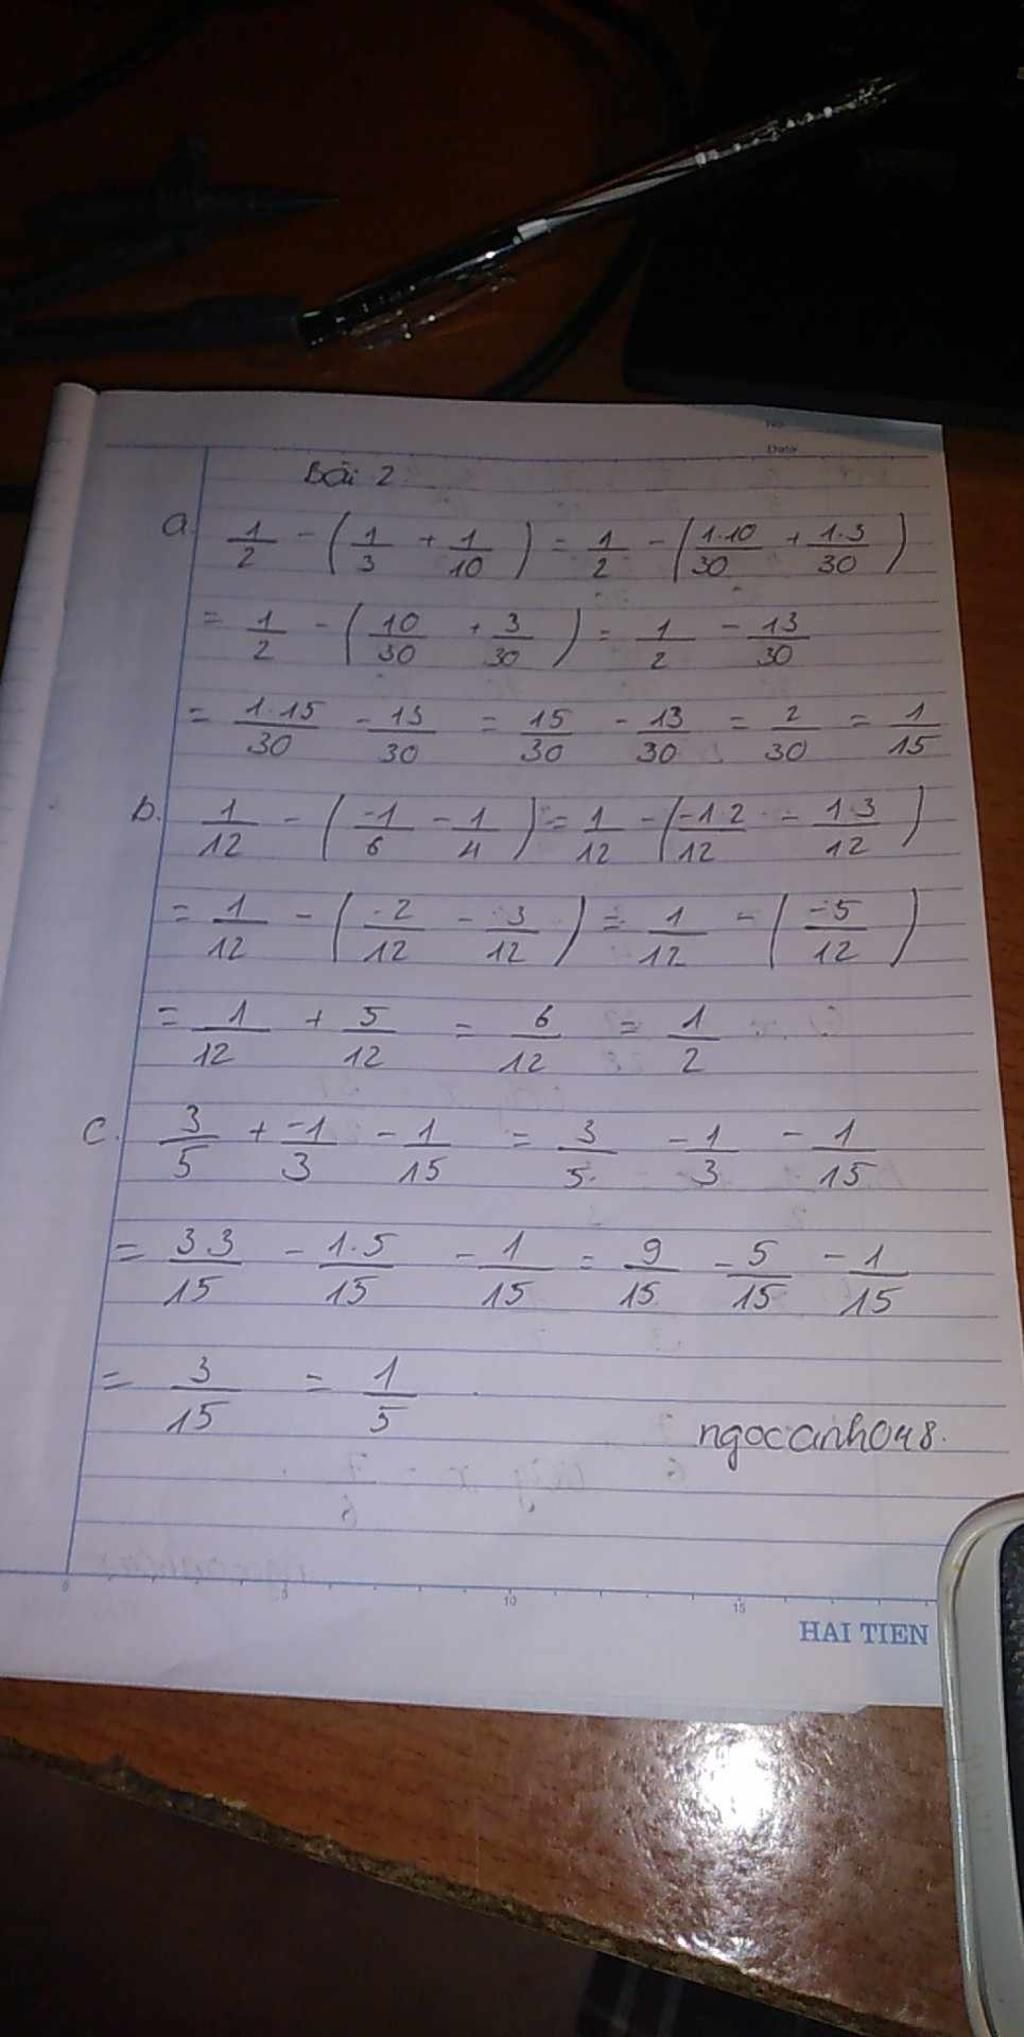 Date
Bài 2
a. 1/2 - (1/3 + 1/10) = 1/2 - (1.10/30 + 1.3/30)
= 1/2 - (10/30 + 3/30) = 1/2 - 13/30
= 1.15/30 - 13/30 = 15/30 - 13/30 = 2/30 = 1/15
b. 1/12 - (-1/6 - 1/4) = 1/12 - (-1.2/12 - 1.3/12)
= 1/12 - (-2/12 - 3/12) = 1/12 - (-5/12)
= 1/12 + 5/12 = 6/12 = 1/2
c. 3/5 + -1/3 - 1/15 = 3/5 - 1/3 - 1/15
= 3.3/15 - 1.5/15 - 1/15 = 9/15 - 5/15 - 1/15
= 3/15 = 1/5
ngocanh048.
0 5 10 15
HAI TIEN